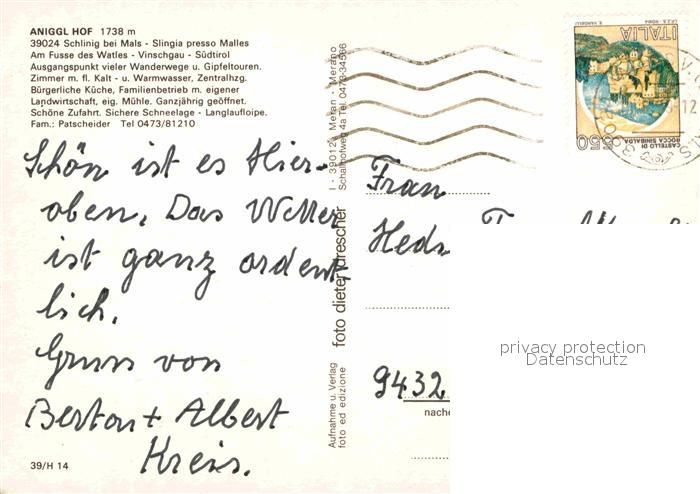 ANIGGL HOF 1738 m
39024 Schlinig bei Mals - Slingia presso Malles
Am Fusse des Watles - Vinschgau - Südtirol
Ausgangspunkt vieler Wanderwege u. Gipfeltouren.
Zimmer m. fl. Kalt - u. Warmwasser, Zentralhzg.
Bürgerliche Küche, Familienbetrieb m. eigener
Landwirtschaft, eig. Mühle. Ganzjährig geöffnet.
Schöne Zufahrt. Sichere Schneelage - Langlaufloipe.
Fam.: Patscheider Tel 0473/81210
Schön ist es Hier-
oben. Das Wetter
ist ganz ordent-
lich.
Gruss von
Berton + Albert
Kreis.
39/H 14
Aufnahme u. Verlag
foto ed edizione
foto dieter drescher
I - 39012 Meran - Merano
Schafhofweg 4a Tel. 0473-34566
ITALIA
CASTELLO DI
ROCCA SINIBALDA
550
Frau
9432
privacy protection
Datenschutz